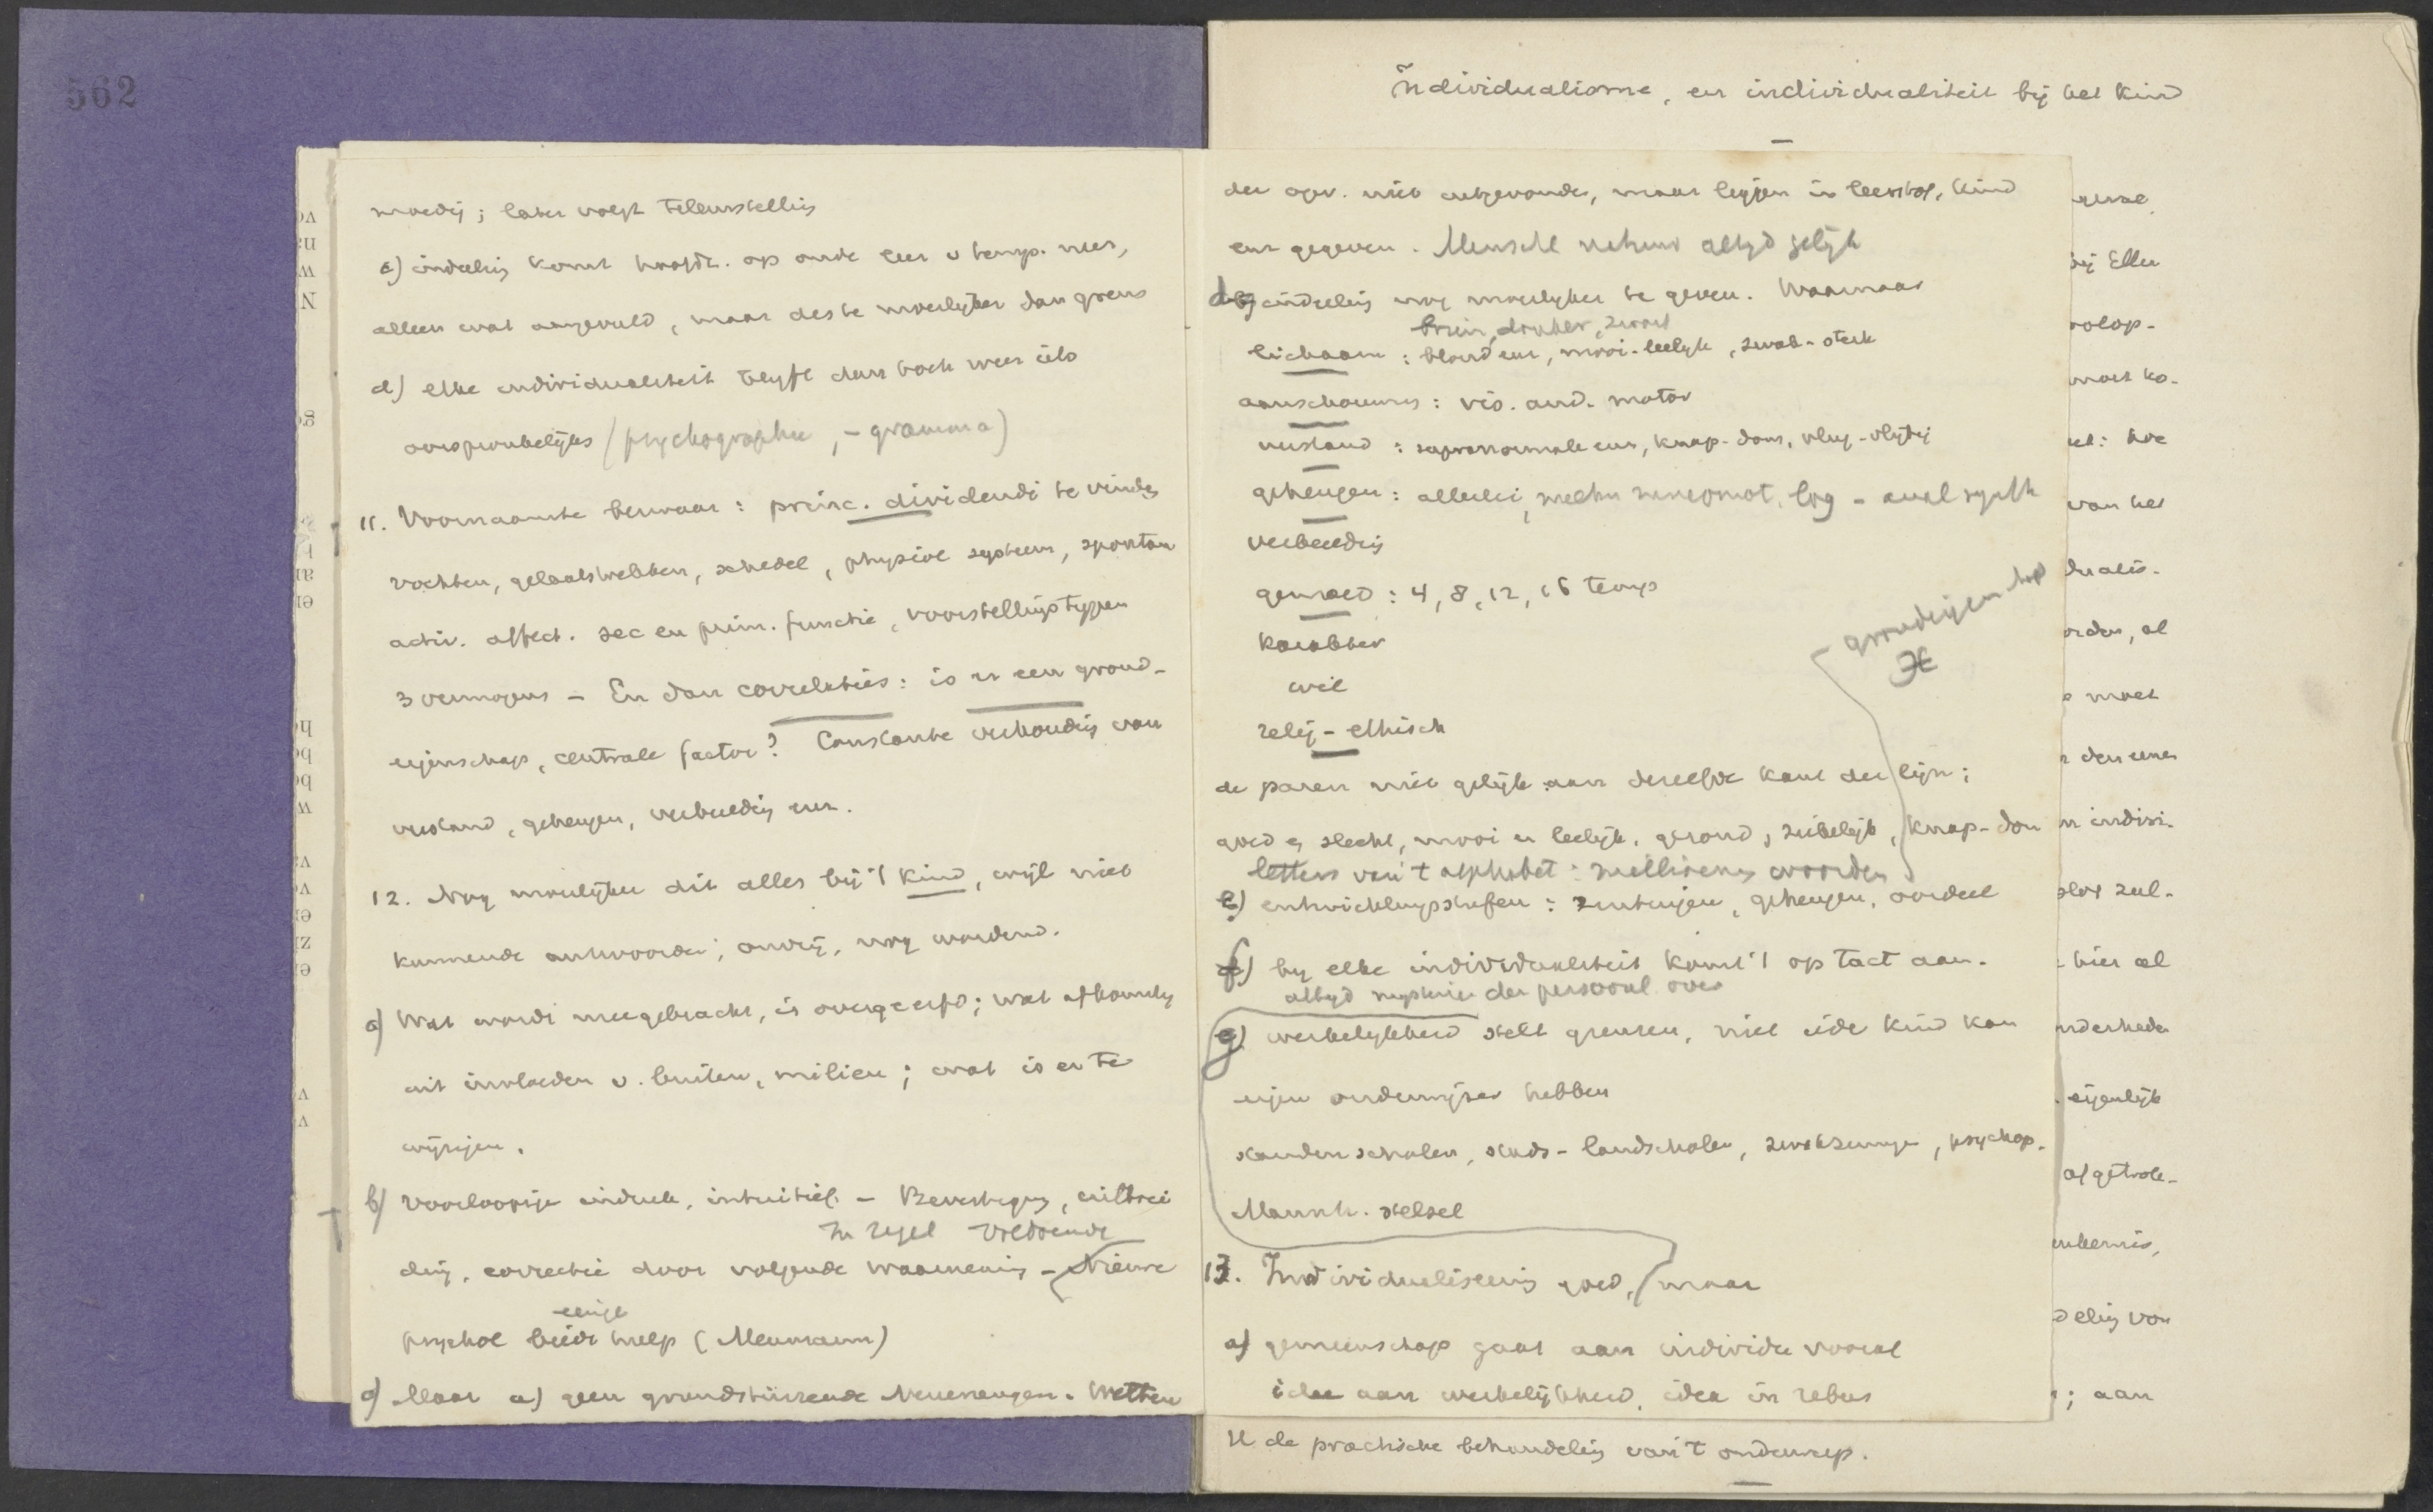 562
Individualisme, en individualiteit bij het kind
moedig; later volgt teleurstelling
c) indeeling komt hoofdz. op oude leer v temp. neer,
alleen wat aangevuld, maar des te moeilijker dan grens
d) elke individualiteit blijft dan toch weer iets
oorspronkelijks (psychographie, -gramma)
11. Voornaamste bezwaar: princ. dividendi te vinden
vochten, gelaatstrekken, schedel, physiol systeem, spontan
activ. affect. sec en prim. functie, voorstellingstypen
3 vermogens - En dan correlaties: is er een grond-
eigenschap, centrale factor? Constante verhouding van
verstand, geheugen, verbeelding enz.
12. Nog moeilijker dit alles bij 't kind, wijl niet
kunnende antwoorden; onvrij, nog wordend.
a) Wat wordt meegebracht, is overgeerfd; wat afkomstig
uit invloeden v. buiten, milieu; wat is er te
wijzigen.
b) Voorloopige indruk, intuitief. - Bevestiging, uitbrei
In regel voldoende
ding, correctie door volgende waarneming - Nieuwe
eenige
psychol biedt hulp (Meumann)
c) Maar a) geen grundstürzende Neuerungen. Wetten
der opv. niet uitgevonden, maar liggen in leerstof, kind
enz gegeven. Mensch neemt altyd gelijk
d) indeeling nog moeilyker te geven. Waarnaar
bruin, donker, zwart
lichaam: blond enz, mooi-leelyk, zwak-sterk
aanschouwing: vis. aud. motor
verstand: supranormale enz, knap-dom, vlug-vlijtig
geheugen: allerlei, mechn log - anal synth
verbeelding
gemoed: 4, 8, 12, 16 temp
karakter
wil
relig-ethisch
grondeigenschap
de paren niet gelijk aan dezelfde kant der lijn;
goed en slecht, mooi en leelijk, gezond, ziekelijk, knap-dom
letters van 't alphabet: millioenen woorden
e) ontwikkelingstrafen: zintuigen, geheugen, oordeel
f) by elke individualiteit komt 't op tact aan.
altyd mysterie der persoonl over
g) werkelykheid stelt grenzen, niet ieder kind kan
eigen onderwijzer hebben
standenscholen, stads-landscholen, zwakzinnigen, psychop.
Mannh. stelsel
13. Individualiseering goed, maar
a) gemeenschap gaat aan individu vooraf
idee aan werkelijkheid, idea in rebus
II de practische behandeling van 't onderwerp.
bij Ellen
moet ko-
van het
dualis-
moet
den eenen
in indivi-
hier al
eigenlijk
afgetrok-
deling van
; aan